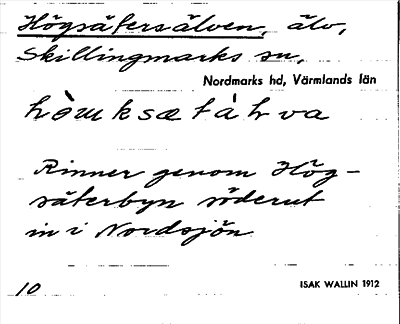 Högsätersälven, älv,
Skillingmarks sn,
Nordmarks hd, Värmlands län
Rinner genom Hög-
säterbyn söderut
in i Nordsjön
10
ISAK WALLIN 1912